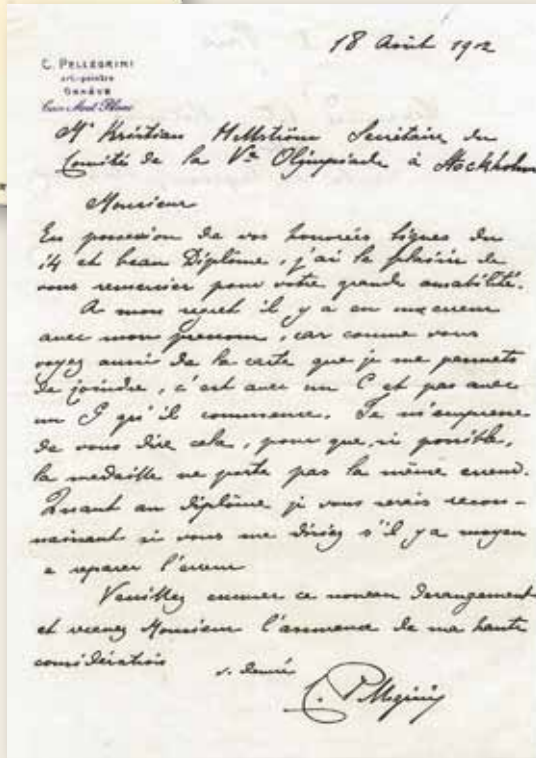 18 Août 1912
C. PELLEGRINI
art.-peintre
GENÈVE
Mr Kristian Hellström Secrétaire du
Comité de la Ve Olimpiade à Stockholm
Monsieur
En possession de vos honorées lignes du
14 et beau Diplôme, j'ai le plaisir de
vous remercier pour votre grande amabilité.
A mon regret il y a eu une erreur
avec mon prenom, car comme vous
voyez aussi de la carte que je me permets
de joindre, c'est avec un C et pas avec
un G qu'il commence. Je m'empresse
de vous dire cela, pour que, si possible,
la medaille ne porte pas la même erreur.
Quant au diplôme je vous serais recon-
naissant si vous me disiez s'il y a moyen
a reparer l'erreur
Veuillez excuser ce nouveau derangement
et recevez Monsieur l'assurance de ma haute
considération
C. Pellegrini